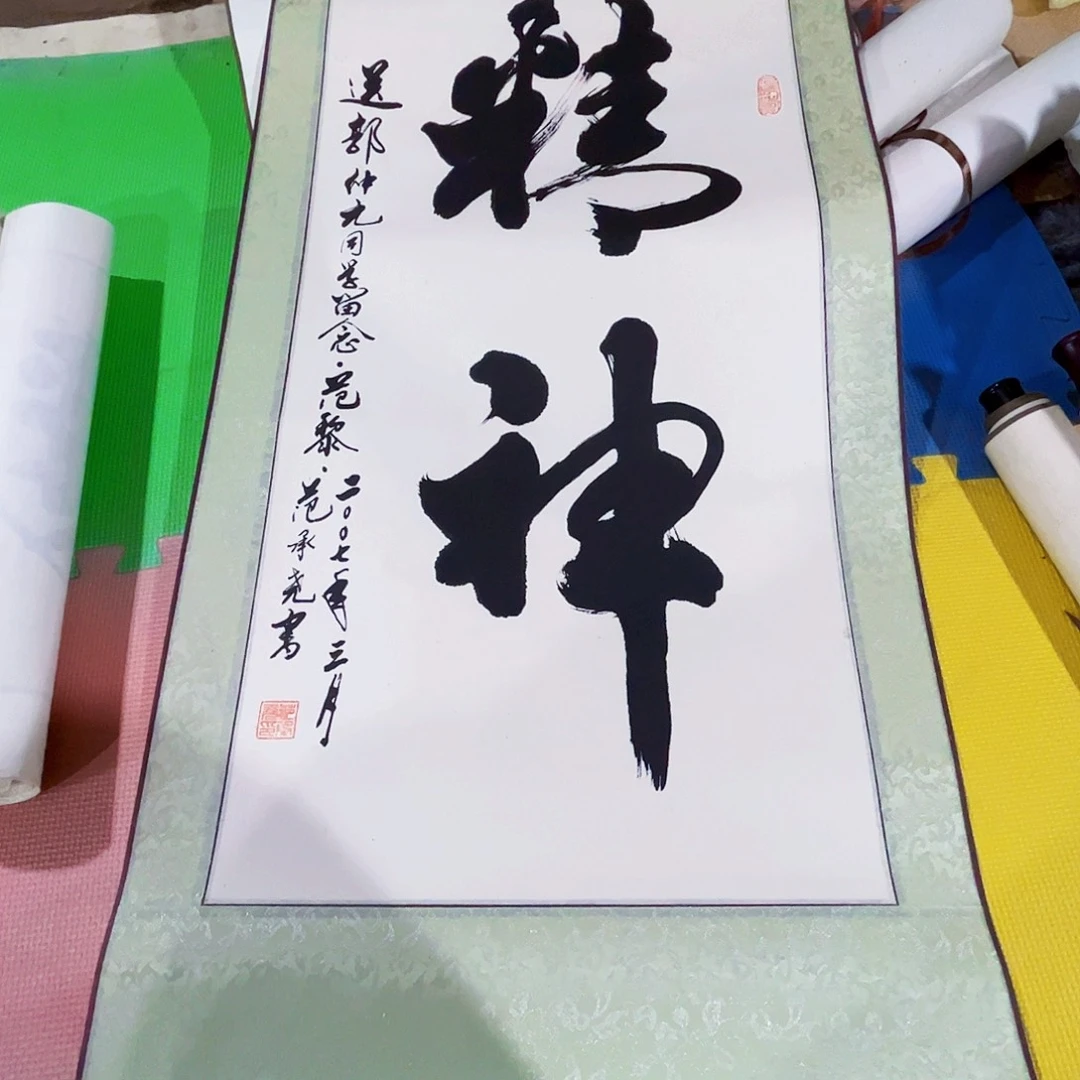 精神
送郭仲九同学留念·范黎·二〇〇七年三月
范承尧书